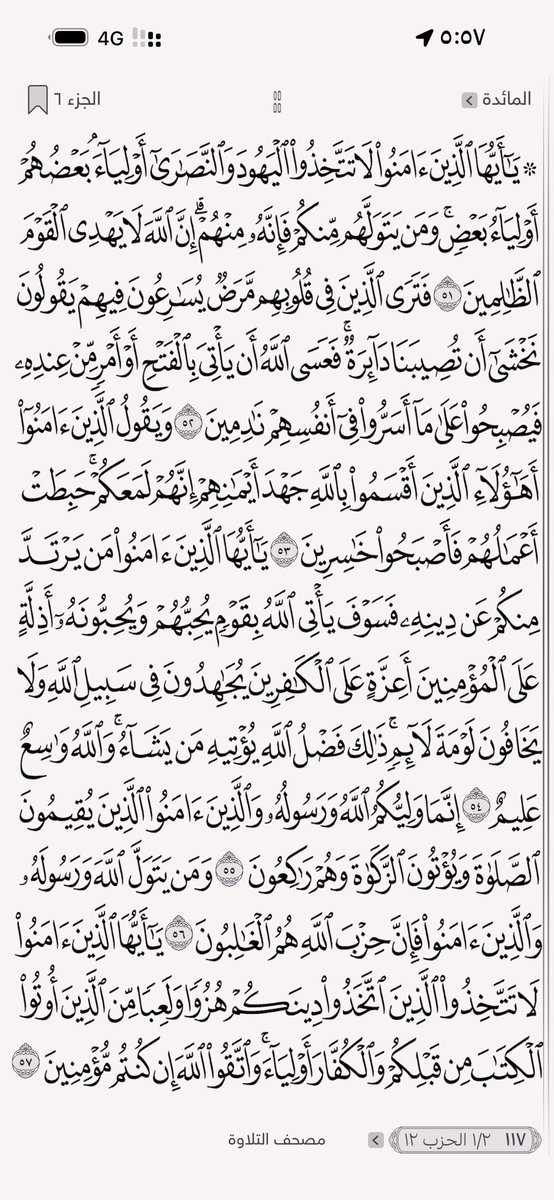 ٥:٥٧ 4G
المائدة الجزء ٦
۞ يَـٰٓأَيُّهَا ٱلَّذِينَ ءَامَنُوا۟ لَا تَتَّخِذُوا۟ ٱلْيَهُودَ وَٱلنَّصَـٰرَىٰٓ أَوْلِيَآءَ ۘ بَعْضُهُمْ
أَوْلِيَآءُ بَعْضٍ ۚ وَمَن يَتَوَلَّهُم مِّنكُمْ فَإِنَّهُۥ مِنْهُمْ ۗ إِنَّ ٱللَّهَ لَا يَهْدِى ٱلْقَوْمَ
ٱلظَّـٰلِمِينَ ٥١ فَتَرَى ٱلَّذِينَ فِى قُلُوبِهِم مَّرَضٌ يُسَـٰرِعُونَ فِيهِمْ يَقُولُونَ
نَخْشَىٰٓ أَن تُصِيبَنَا دَآئِرَةٌ ۚ فَعَسَى ٱللَّهُ أَن يَأْتِىَ بِٱلْفَتْحِ أَوْ أَمْرٍ مِّنْ عِندِهِۦ
فَيُصْبِحُوا۟ عَلَىٰ مَآ أَسَرُّوا۟ فِىٓ أَنفُسِهِمْ نَـٰدِمِينَ ٥٢ وَيَقُولُ ٱلَّذِينَ ءَامَنُوٓا۟
أَهَـٰٓؤُلَآءِ ٱلَّذِينَ أَقْسَمُوا۟ بِٱللَّهِ جَهْدَ أَيْمَـٰنِهِمْ إِنَّهُمْ لَمَعَكُمْ ۚ حَبِطَتْ
أَعْمَـٰلُهُمْ فَأَصْبَحُوا۟ خَـٰسِرِينَ ٥٣ يَـٰٓأَيُّهَا ٱلَّذِينَ ءَامَنُوا۟ مَن يَرْتَدَّ
مِنكُمْ عَن دِينِهِۦ فَسَوْفَ يَأْتِى ٱللَّهُ بِقَوْمٍ يُحِبُّهُمْ وَيُحِبُّونَهُۥٓ أَذِلَّةٍ
عَلَى ٱلْمُؤْمِنِينَ أَعِزَّةٍ عَلَى ٱلْكَـٰفِرِينَ يُجَـٰهِدُونَ فِى سَبِيلِ ٱللَّهِ وَلَا
يَخَافُونَ لَوْمَةَ لَآئِمٍ ۚ ذَٰلِكَ فَضْلُ ٱللَّهِ يُؤْتِيهِ مَن يَشَآءُ ۚ وَٱللَّهُ وَٰسِعٌ
عَلِيمٌ ٥٤ إِنَّمَا وَلِيُّكُمُ ٱللَّهُ وَرَسُولُهُۥ وَٱلَّذِينَ ءَامَنُوا۟ ٱلَّذِينَ يُقِيمُونَ
ٱلصَّلَوٰةَ وَيُؤْتُونَ ٱلزَّكَوٰةَ وَهُمْ رَٰكِعُونَ ٥٥ وَمَن يَتَوَلَّ ٱللَّهَ وَرَسُولَهُۥ
وَٱلَّذِينَ ءَامَنُوا۟ فَإِنَّ حِزْبَ ٱللَّهِ هُمُ ٱلْغَـٰلِبُونَ ٥٦ يَـٰٓأَيُّهَا ٱلَّذِينَ ءَامَنُوا۟
لَا تَتَّخِذُوا۟ ٱلَّذِينَ ٱتَّخَذُوا۟ دِينَكُمْ هُزُوًا وَلَعِبًا مِّنَ ٱلَّذِينَ أُوتُوا۟
ٱلْكِتَـٰبَ مِن قَبْلِكُمْ وَٱلْكُفَّارَ أَوْلِيَآءَ ۚ وَٱتَّقُوا۟ ٱللَّهَ إِن كُنتُم مُّؤْمِنِينَ ٥٧
١١٧ ١/٢ الحزب ١٢ مصحف التلاوة